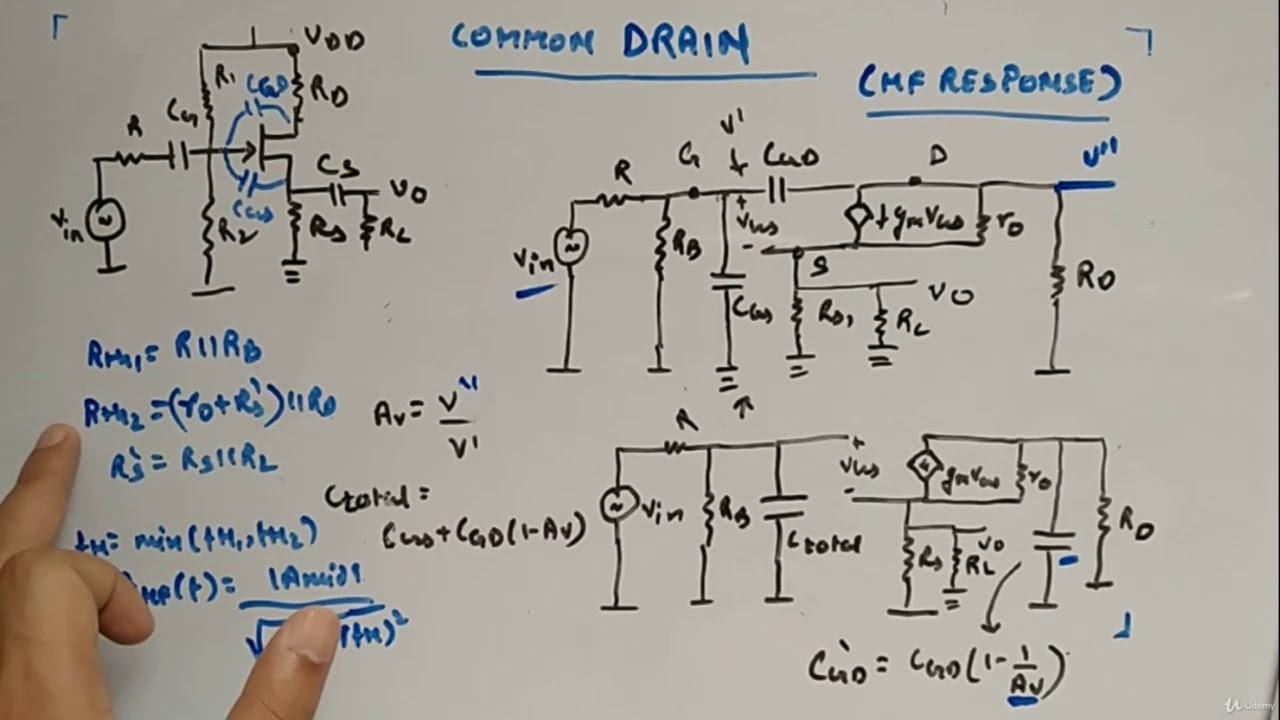 COMMON DRAIN
(HF RESPONSE)
VDD
R1
CGD
RD
CG
R
CS
VO
Vin
CGS
R2
RS
RL
V'
G
CGD
D
V"
R
Vin
RB
+
VGS
-
gmVGS
rO
S
VO
CGS
RL
RD
RTH1 = R || RB
RTH2 = (rO + RS') || RD
RS' = RS || RL
AV = V" / V'
Ctotal =
CGS + CGD (1 - AV)
fH = min (fH1, fH2)
|Amid|
R
+
VGS
-
Vin
RB
Ctotal
gmVGS
rO
RS
RL
VO
RD
C'GD = CGD (1 - 1/AV)
Udemy